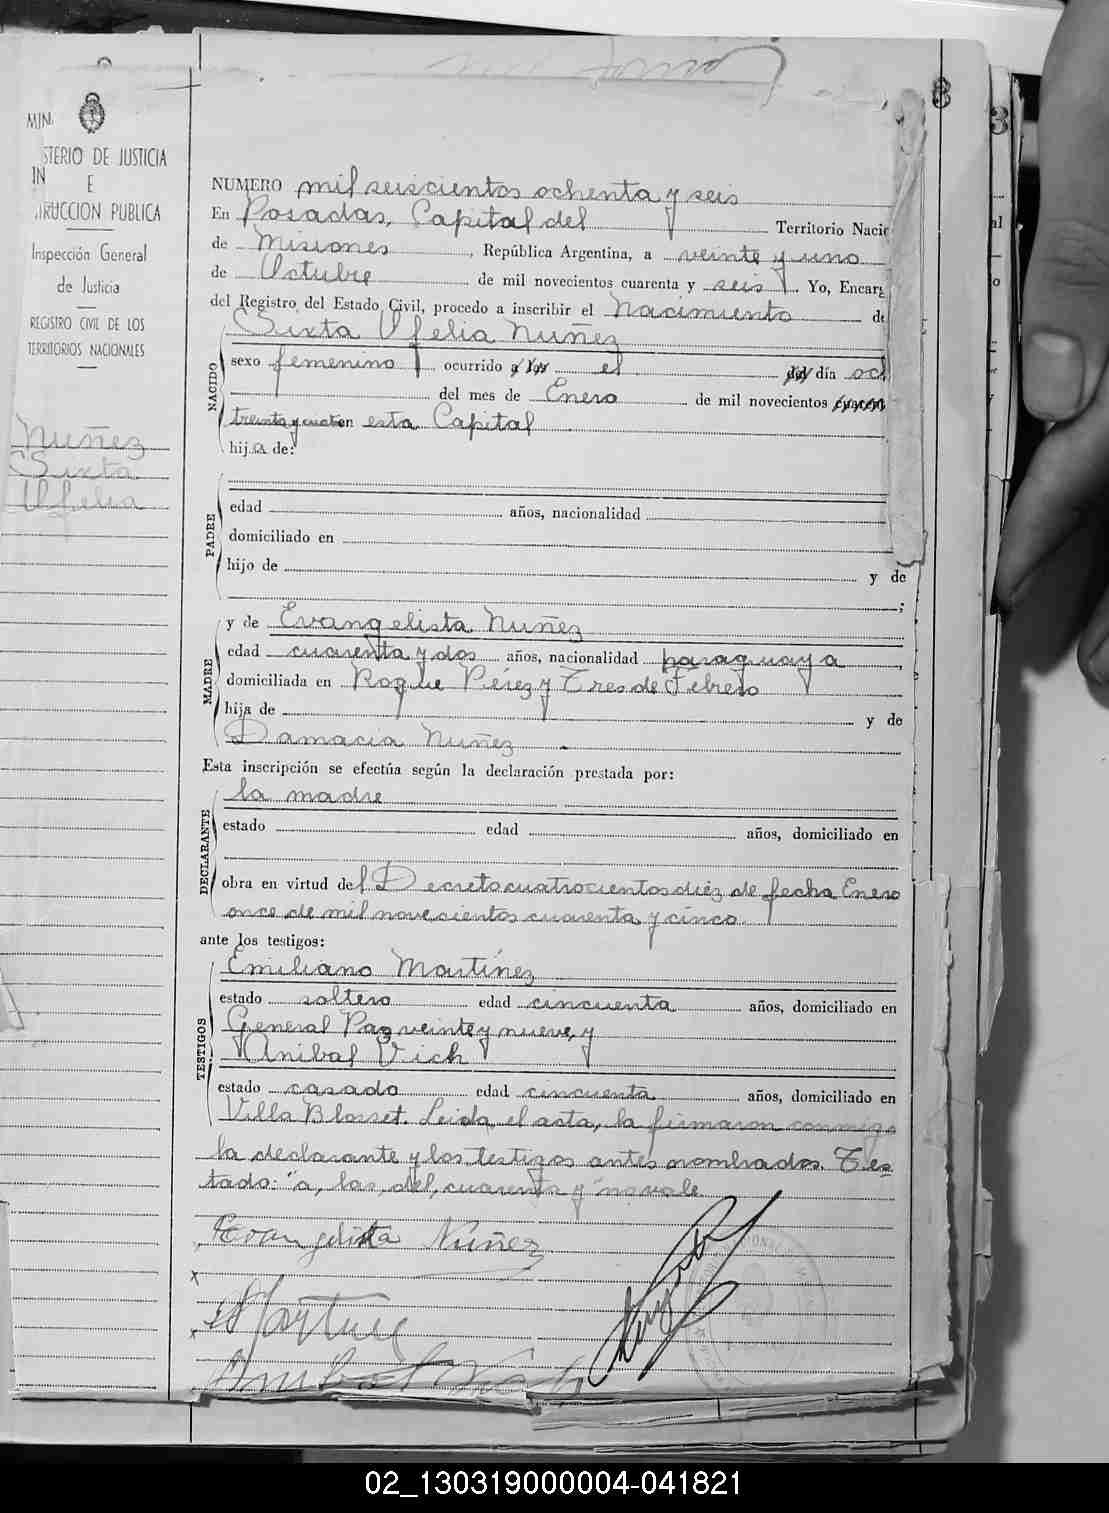 MIN
STERIO DE JUSTICIA
IN
E
RUCCION PUBLICA
Inspección General
de Justicia
REGISTRO CIVIL DE LOS
TERRITORIOS NACIONALES
Nuñez
Sixta
Ofelia
8
3
NUMERO mil seiscientos ochenta y seis
En Posadas, Capital del Territorio Nacio
de Misiones, República Argentina, a veinte y uno
de Octubre de mil novecientos cuarenta y seis. Yo, Encarg
del Registro del Estado Civil, procedo a inscribir el Nacimiento de
NACIDO
Sixta Ofelia Nuñez
sexo femenino, ocurrido a las el del día och
del mes de Enero de mil novecientos cuaren
treinta y cuatro en esta Capital
hija de:
PADRE
edad años, nacionalidad
domiciliado en
hijo de y de
;
MADRE
y de Evangelista Nuñez
edad cuarenta y dos años, nacionalidad paraguaya,
domiciliada en Roque Pérez y Tres de Febrero
hija de y de
Damacia Nuñez.
Esta inscripción se efectúa según la declaración prestada por:
DECLARANTE
la madre
estado edad años, domiciliado en
obra en virtud del Decreto cuatrocientos diez de fecha Enero
once de mil novecientos cuarenta y cinco.
ante los testigos:
TESTIGOS
Emiliano Martínez
estado soltero edad cincuenta años, domiciliado en
General Paz veinte y nueve, y
Anibal Vich
estado casado edad cincuenta años, domiciliado en
Villa Blosset. Leida el acta, la firmaron conmigo
la declarante y los testigos antes nombrados. Tes
tado: "a, las, del, cuarenta y" no vale
Evangelista Nuñez
x
EMartinez
x
Anibal Vich
02_130319000004-041821